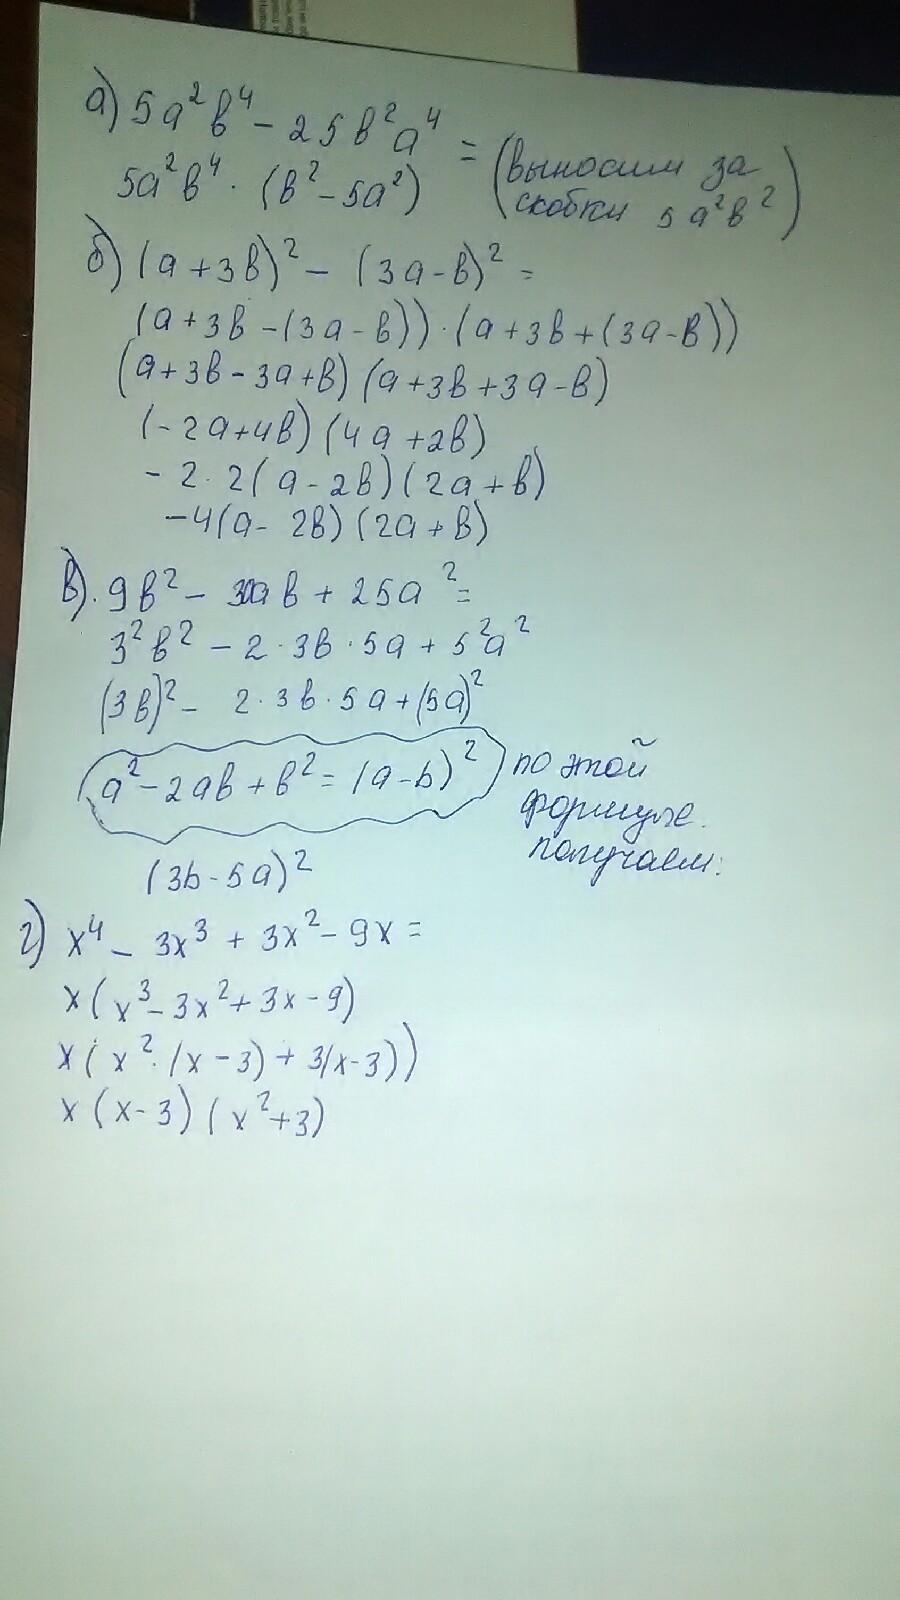 а) 5a²b⁴ - 25b²a⁴ = (выносим за
5a²b⁴ · (b² - 5a²) скобки 5a²b²)
б) (a + 3b)² - (3a - b)² =
(a + 3b - (3a - b)) · (a + 3b + (3a - b))
(a + 3b - 3a + b) (a + 3b + 3a - b)
(-2a + 4b) (4a + 2b)
- 2 · 2 (a - 2b) (2a + b)
-4(a - 2b) (2a + b)
в). 9b² - 30ab + 25a² =
3²b² - 2 · 3b · 5a + 5²a²
(3b)² - 2 · 3b · 5a + (5a)²
(a² - 2ab + b² = (a - b)²) по этой
формуле
получаем:
(3b - 5a)²
г) x⁴ - 3x³ + 3x² - 9x =
x (x³ - 3x² + 3x - 9)
x (x² · (x - 3) + 3(x - 3))
x (x - 3) (x² + 3)